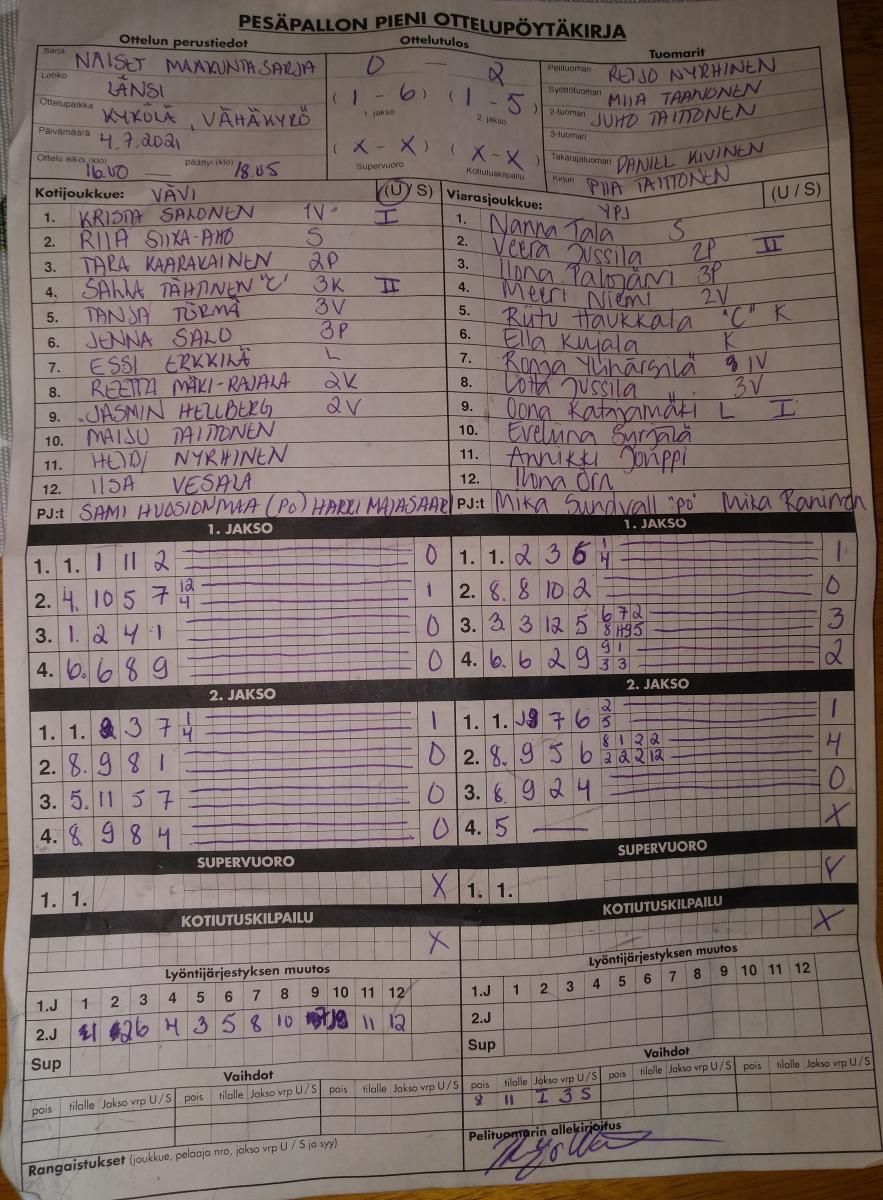 PESÄPALLON PIENI OTTELUPÖYTÄKIRJA
Ottelun perustiedot
Ottelutulos
Tuomarit
Sarja NAISET MAAKUNTASARJA
Lohko LÄNSI
Ottelupaikka KYKÖLÄ, VÄHÄKYRÖ
Päivämäärä 4.7.2021
Ottelu alkoi (klo) 16.00 — päättyi (klo) 18.05
0 — 2
(1 - 6) (1 - 5)
1. jakso 2. jakso
(X - X) (X - X)
Supervuoro Kotiutuskilpailu
Pelituomari REIJO NYRHINEN
Syöttötuomari MIIA TAANONEN
2-tuomari JUHO TAITTONEN
3-tuomari
Takarajatuomari DANIEL KIVINEN
Kirjuri PIIA TAITTONEN
Kotijoukkue: VÄVI (U / S)
1. KRISTA SALONEN 1V I
2. RIIA SIIKA-AHO S
3. TARA KAARAKAINEN 2P
4. SALLA TÄHTINEN "C" 3K II
5. TANJA TÖRMÄ 3V
6. JENNA SALO 3P
7. ESSI ERKKILÄ L
8. REETTA MÄKI-RAJALA 2K
9. JASMIN HELLBERG 2V
10. MAIJU TAITTONEN
11. HEIDI NYRHINEN
12. IISA VESALA
PJ:t SAMI HUOSIONMAA (PO) HARRI MAJASAARI
Vierasjoukkue: YPJ (U / S)
1. Nanna Tala S
2. Veera Jussila 2P II
3. Ilona Palojärvi 3P
4. Meeri Niemi 2V
5. Riitu Haukkala "C" K
6. Ella Kujala K
7. Ronja Ylihärsilä 1V
8. Lotta Jussila 3V
9. Oona Katajamäki L I
10. Eveliina Syrjälä
11. Annikki Jouppi
12. Ilona Örn
PJ:t Mika Sundvall "po" Mika Raninen
1. JAKSO
1. 1. 1 11 2 0
2. 4. 10 5 7 12 4 1
3. 1. 2 4 1 0
4. 6. 6 8 9 0
1. JAKSO
1. 1. 2 3 5 1 4 1
2. 8. 8 10 2 0
3. 3. 3 12 5 6 7 2 8 11 9 5 3
4. 6. 6 2 9 9 1 3 3 2
2. JAKSO
1. 1. 2 3 7 1 4 1
2. 8. 9 8 1 0
3. 5. 11 5 7 0
4. 8. 9 8 4 0
2. JAKSO
1. 1. 7 6 2 5 1
2. 8. 9 5 6 8 1 2 2 2 2 2 12 4
3. 8. 9 2 4 0
4. 5 — X
SUPERVUORO
1. 1. X
SUPERVUORO
1. 1. X
KOTIUTUSKILPAILU
X
KOTIUTUSKILPAILU
X
Lyöntijärjestyksen muutos
1.J 1 2 3 4 5 6 7 8 9 10 11 12
2.J 1 2 6 4 3 5 8 10 11 12
Sup
Lyöntijärjestyksen muutos
1.J 1 2 3 4 5 6 7 8 9 10 11 12
2.J
Sup
Vaihdot
pois tilalle Jakso vrp U / S pois tilalle Jakso vrp U / S pois tilalle Jakso vrp U / S
Vaihdot
pois tilalle Jakso vrp U / S pois tilalle Jakso vrp U / S pois tilalle Jakso vrp U / S
8 11 I 3 S
Rangaistukset (joukkue, pelaaja nro, jakso vrp U / S ja syy)
Pelituomarin allekirjoitus